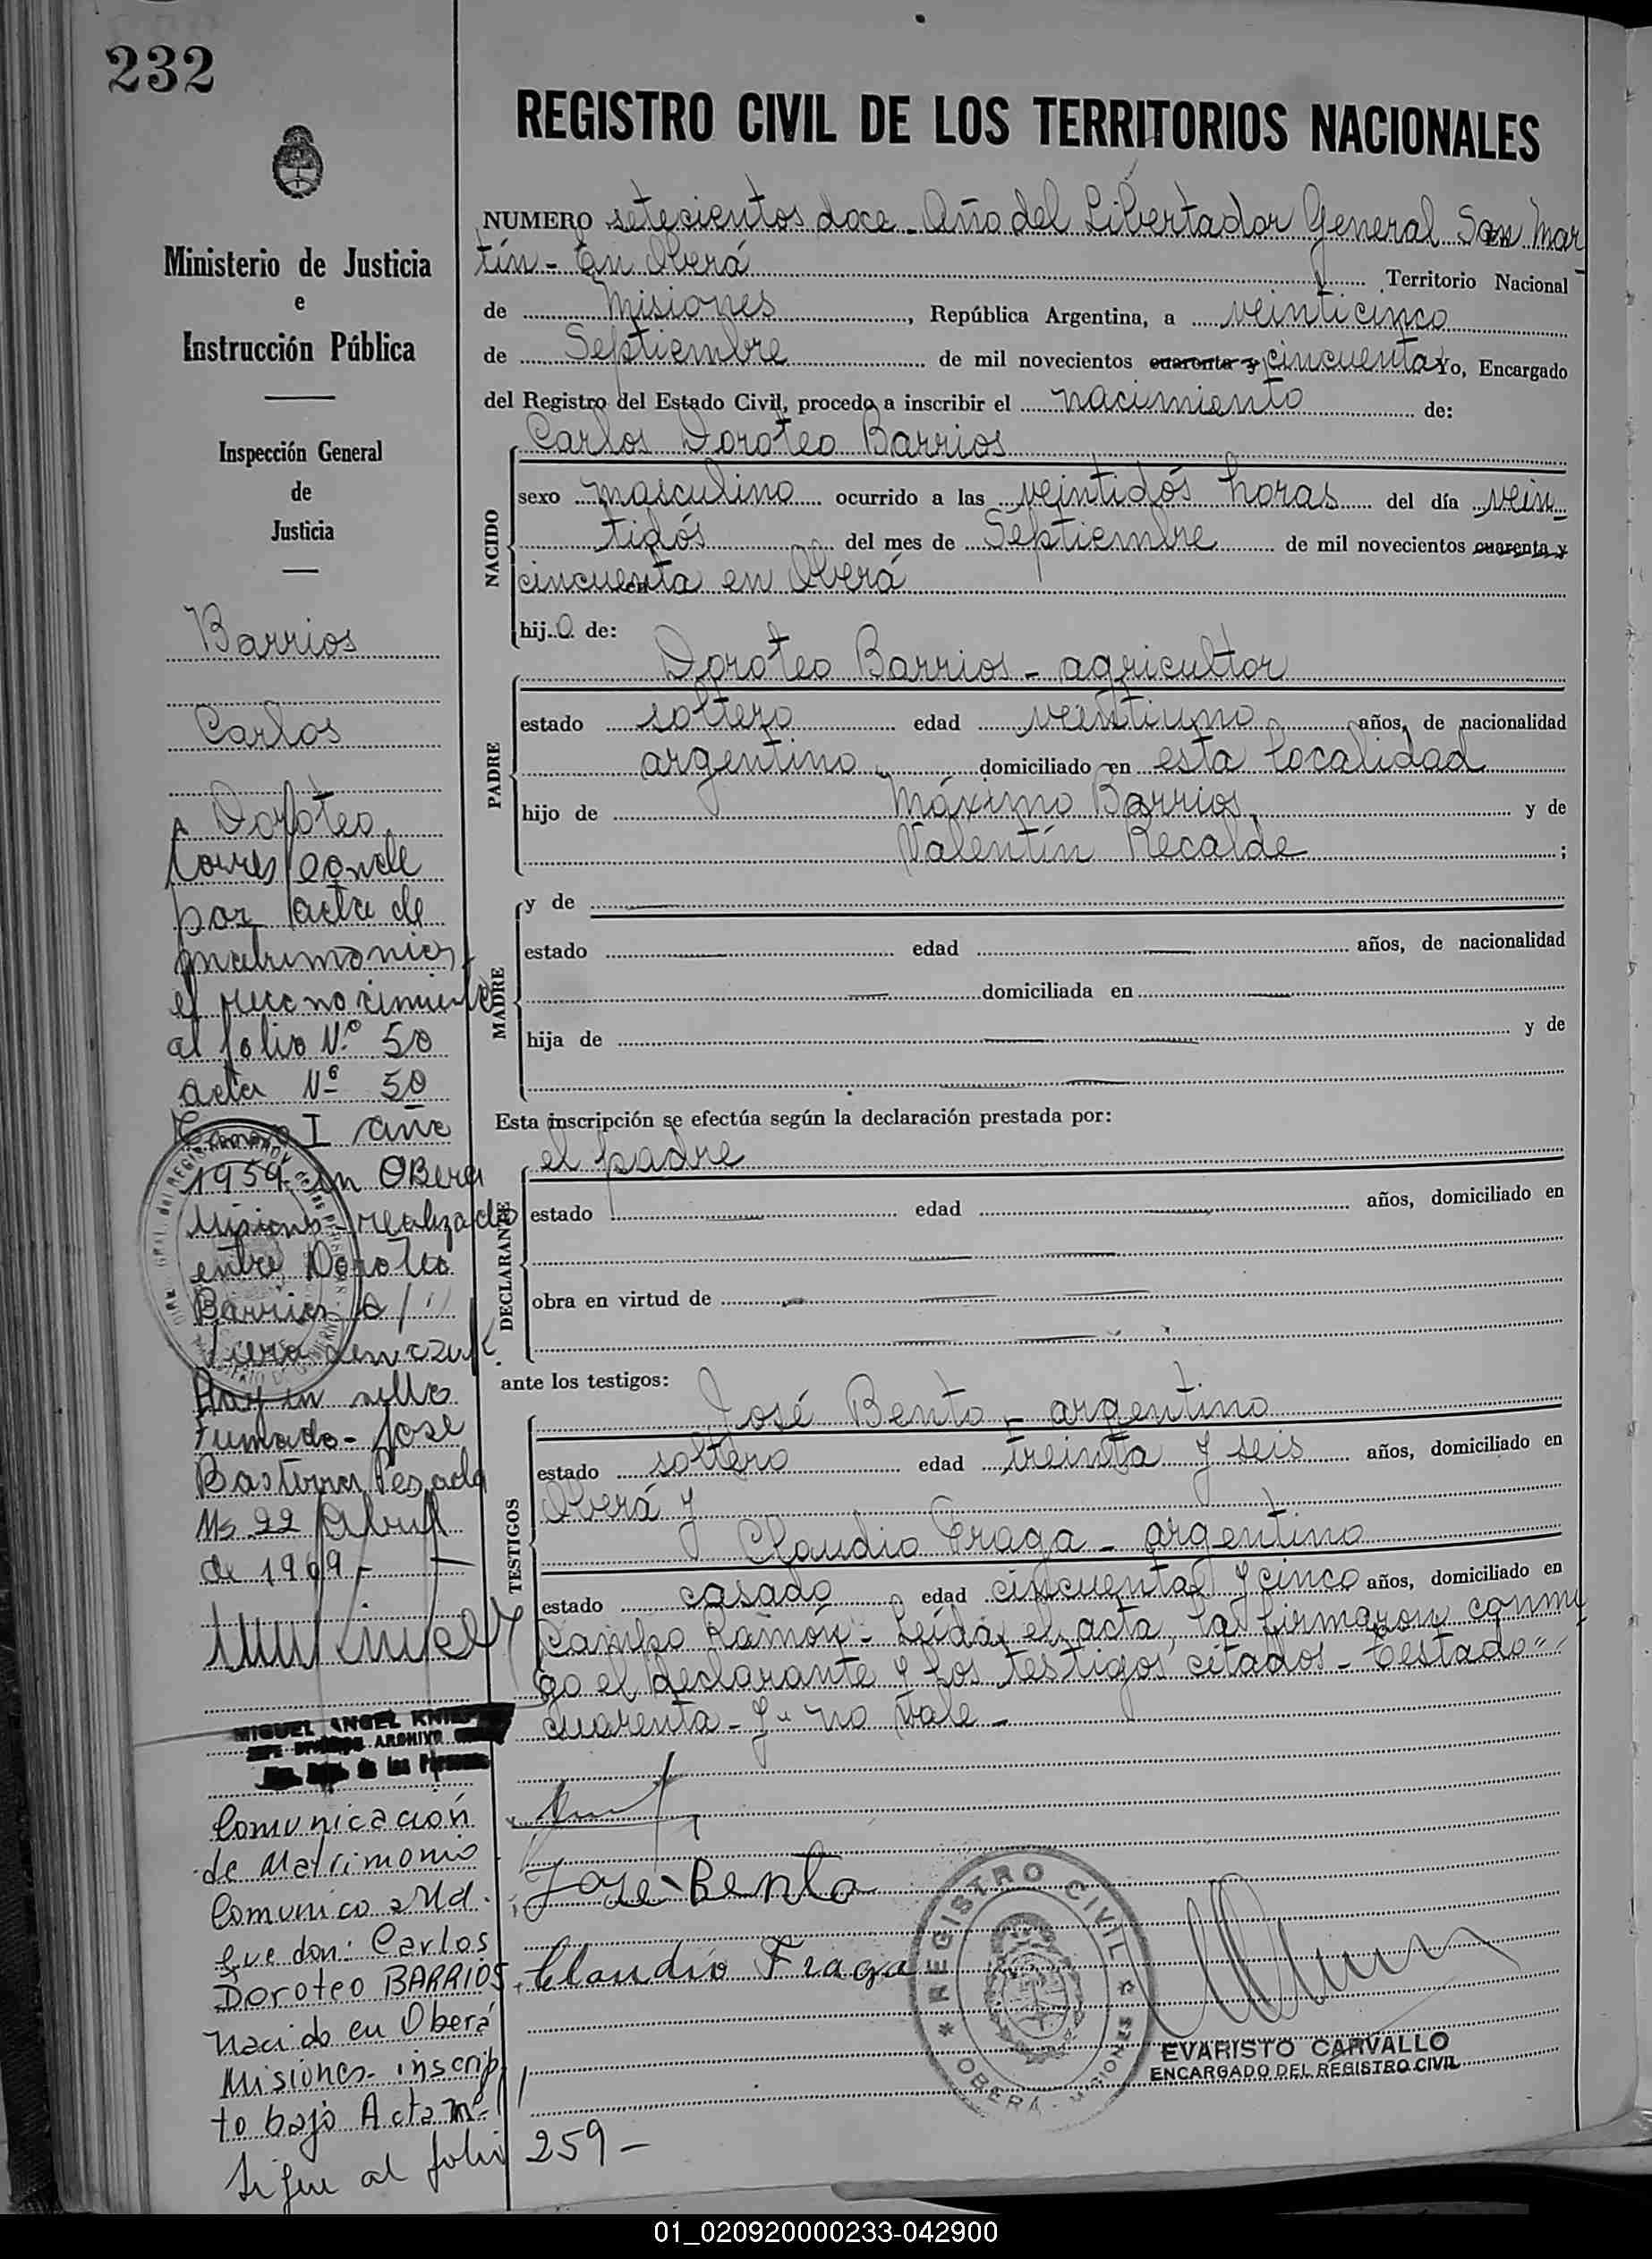 232
Ministerio de Justicia
e
Instrucción Pública
Inspección General
de
Justicia
Barrios
Carlos
Doroteo
Corresponde
por acta de
matrimonio,
el reconocimiento
al folio Nº 50
acta Nº 50
Tomo I año
1959 en Obera
Misiones - realizado
entre Doroteo
Barrios
Hay un sello
Firmado - Jose
Basterra Posadas
Ms 22 Abril
de 1969 -
MIGUEL ANGEL
JEFE ARCHIVO
de las Personas
Comunicación
de Matrimonio
Comunico a Ud.
que don: Carlos
Doroteo BARRIOS
Nacido en Oberá
Misiones - inscrip
to bajo Acta nº
Sigue al folio 259 -
REGISTRO CIVIL DE LOS TERRITORIOS NACIONALES
NUMERO setecientos doce - Año del Libertador General San Mar
tín - En Oberá Territorio Nacional
de Misiones, República Argentina, a veinticinco
de Septiembre de mil novecientos cuarenta y cincuenta Yo, Encargado
del Registro del Estado Civil, procedo a inscribir el nacimiento de:
NACIDO
Carlos Doroteo Barrios
sexo masculino ocurrido a las veintidós horas del día vein
tidós del mes de Septiembre de mil novecientos cuarenta y
cincuenta en Oberá
hijo de:
PADRE
Doroteo Barrios - agricultor
estado soltero edad veintiuno años, de nacionalidad
argentino domiciliado en esta localidad
hijo de Máximo Barrios y de
Valentín Recalde;
MADRE
y de
estado edad años, de nacionalidad
domiciliada en
hija de y de
Esta inscripción se efectúa según la declaración prestada por:
DECLARANTE
el padre
estado edad años, domiciliado en
obra en virtud de
ante los testigos:
TESTIGOS
José Bento - argentino
estado soltero edad treinta y seis años, domiciliado en
Oberá y
Claudio Fraga - argentino
estado casado edad cincuenta y cinco años, domiciliado en
Campo Ramón - Leída el acta, la firmaron conmi
go el declarante y los testigos citados - Testado"
cuarenta - y" no vale -
Jose Bento
Claudio Fraga
REGISTRO CIVIL
OBERÁ - MISIONES
EVARISTO CARVALLO
ENCARGADO DEL REGISTRO CIVIL
01_020920000233-042900